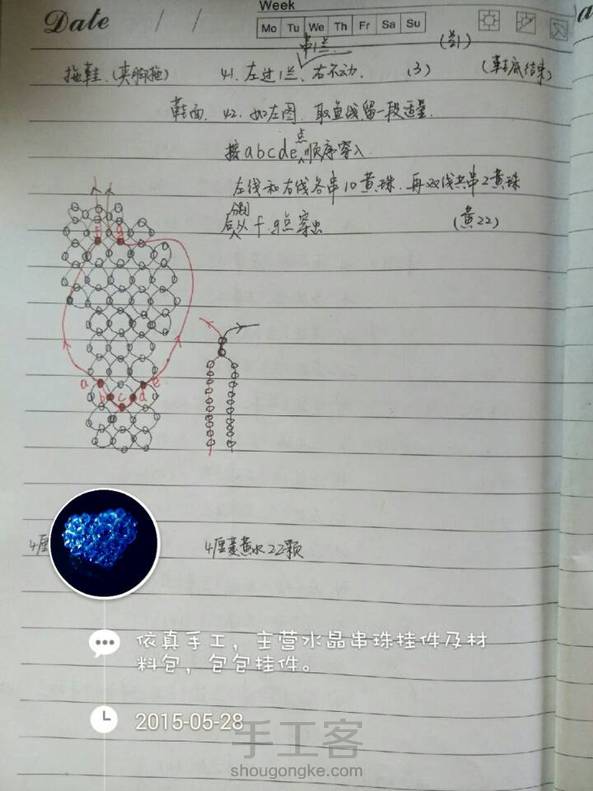 Date / / Week
Mo Tu We Th Fr Sa Su
串1兰 (兰1)
拖鞋.(夹脚拖) 41. 左过1兰、右不动. (3) (鞋底结束)
鞋面. 42. 如左图. 取鱼线留一段适量.
按abcde点顺序穿入.
左线和右线各串10黄珠. 再双线共串2黄珠
分别从f.g点穿出 (黄22)
f g
a e
b d
c
4厘 4厘 黄水22颗
依真手工，主营水晶串珠挂件及材
料包，包包挂件。
2015-05-28
手工客
shougongke.com